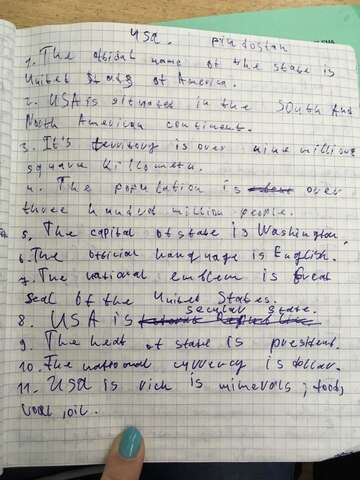 USA. pindostan
1. The offical name of the state is
United States of America.
2. USA is situated in the South And
North American continent.
3. It's territory is over nine millions
square killometu.
4. The population is over
three hundred million people.
5. The capital of state is Washington.
6. The official language is English.
7. The national emblem is Great
Seal of the United States.
8. USA is secular state.
9. The head of state is president.
10. The national currency is dollar.
11. USA is rich is minerals, food,
coal, oil.